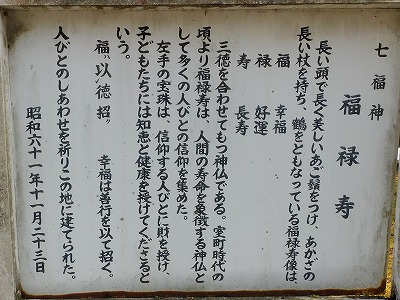 七福神
福禄寿
長い頭で長く美しいあご鬚をつけ、あかざの
長い杖を持ち、鶴をともなっている福禄寿像は、
福 幸福
禄 好運
寿 長寿
三徳を合わせてもつ神仏である。室町時代の
頃より福禄寿は、人間の寿命を象徴する神仏と
して多くの人びとの信仰を集めた。
左手の宝珠は、信仰する人びとに財を授け、
子どもたちには知恵と健康を授けてくださると
いう。
福〝以徳招〟 幸福は善行を以て招く。
人びとのしあわせを祈りこの地に建てられた。
昭和六十一年十一月二十三日